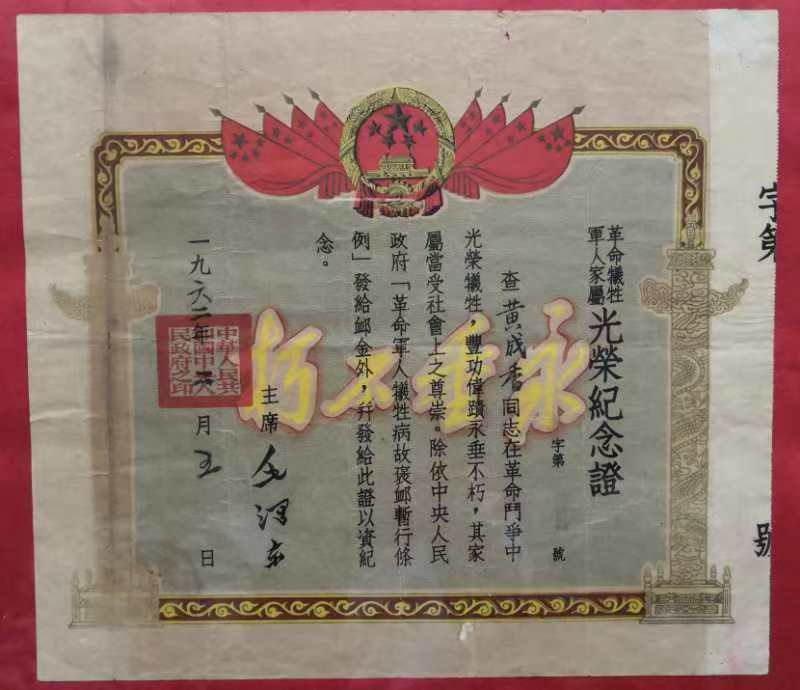 字第
號
革命犧牲
軍人家屬
光榮紀念證
字第 號
查黃成香同志在革命鬥爭中
光榮犧牲，豐功偉蹟永垂不朽，其家
屬當受社會上之尊崇。除依中央人民
政府「革命軍人犧牲病故褒卹暫行條
例」發給卹金外，幷發給此證以資紀
念。
永垂不朽
主席 毛澤东
一九六二年五月五日
中華人民共
和國中央人
民政府之印